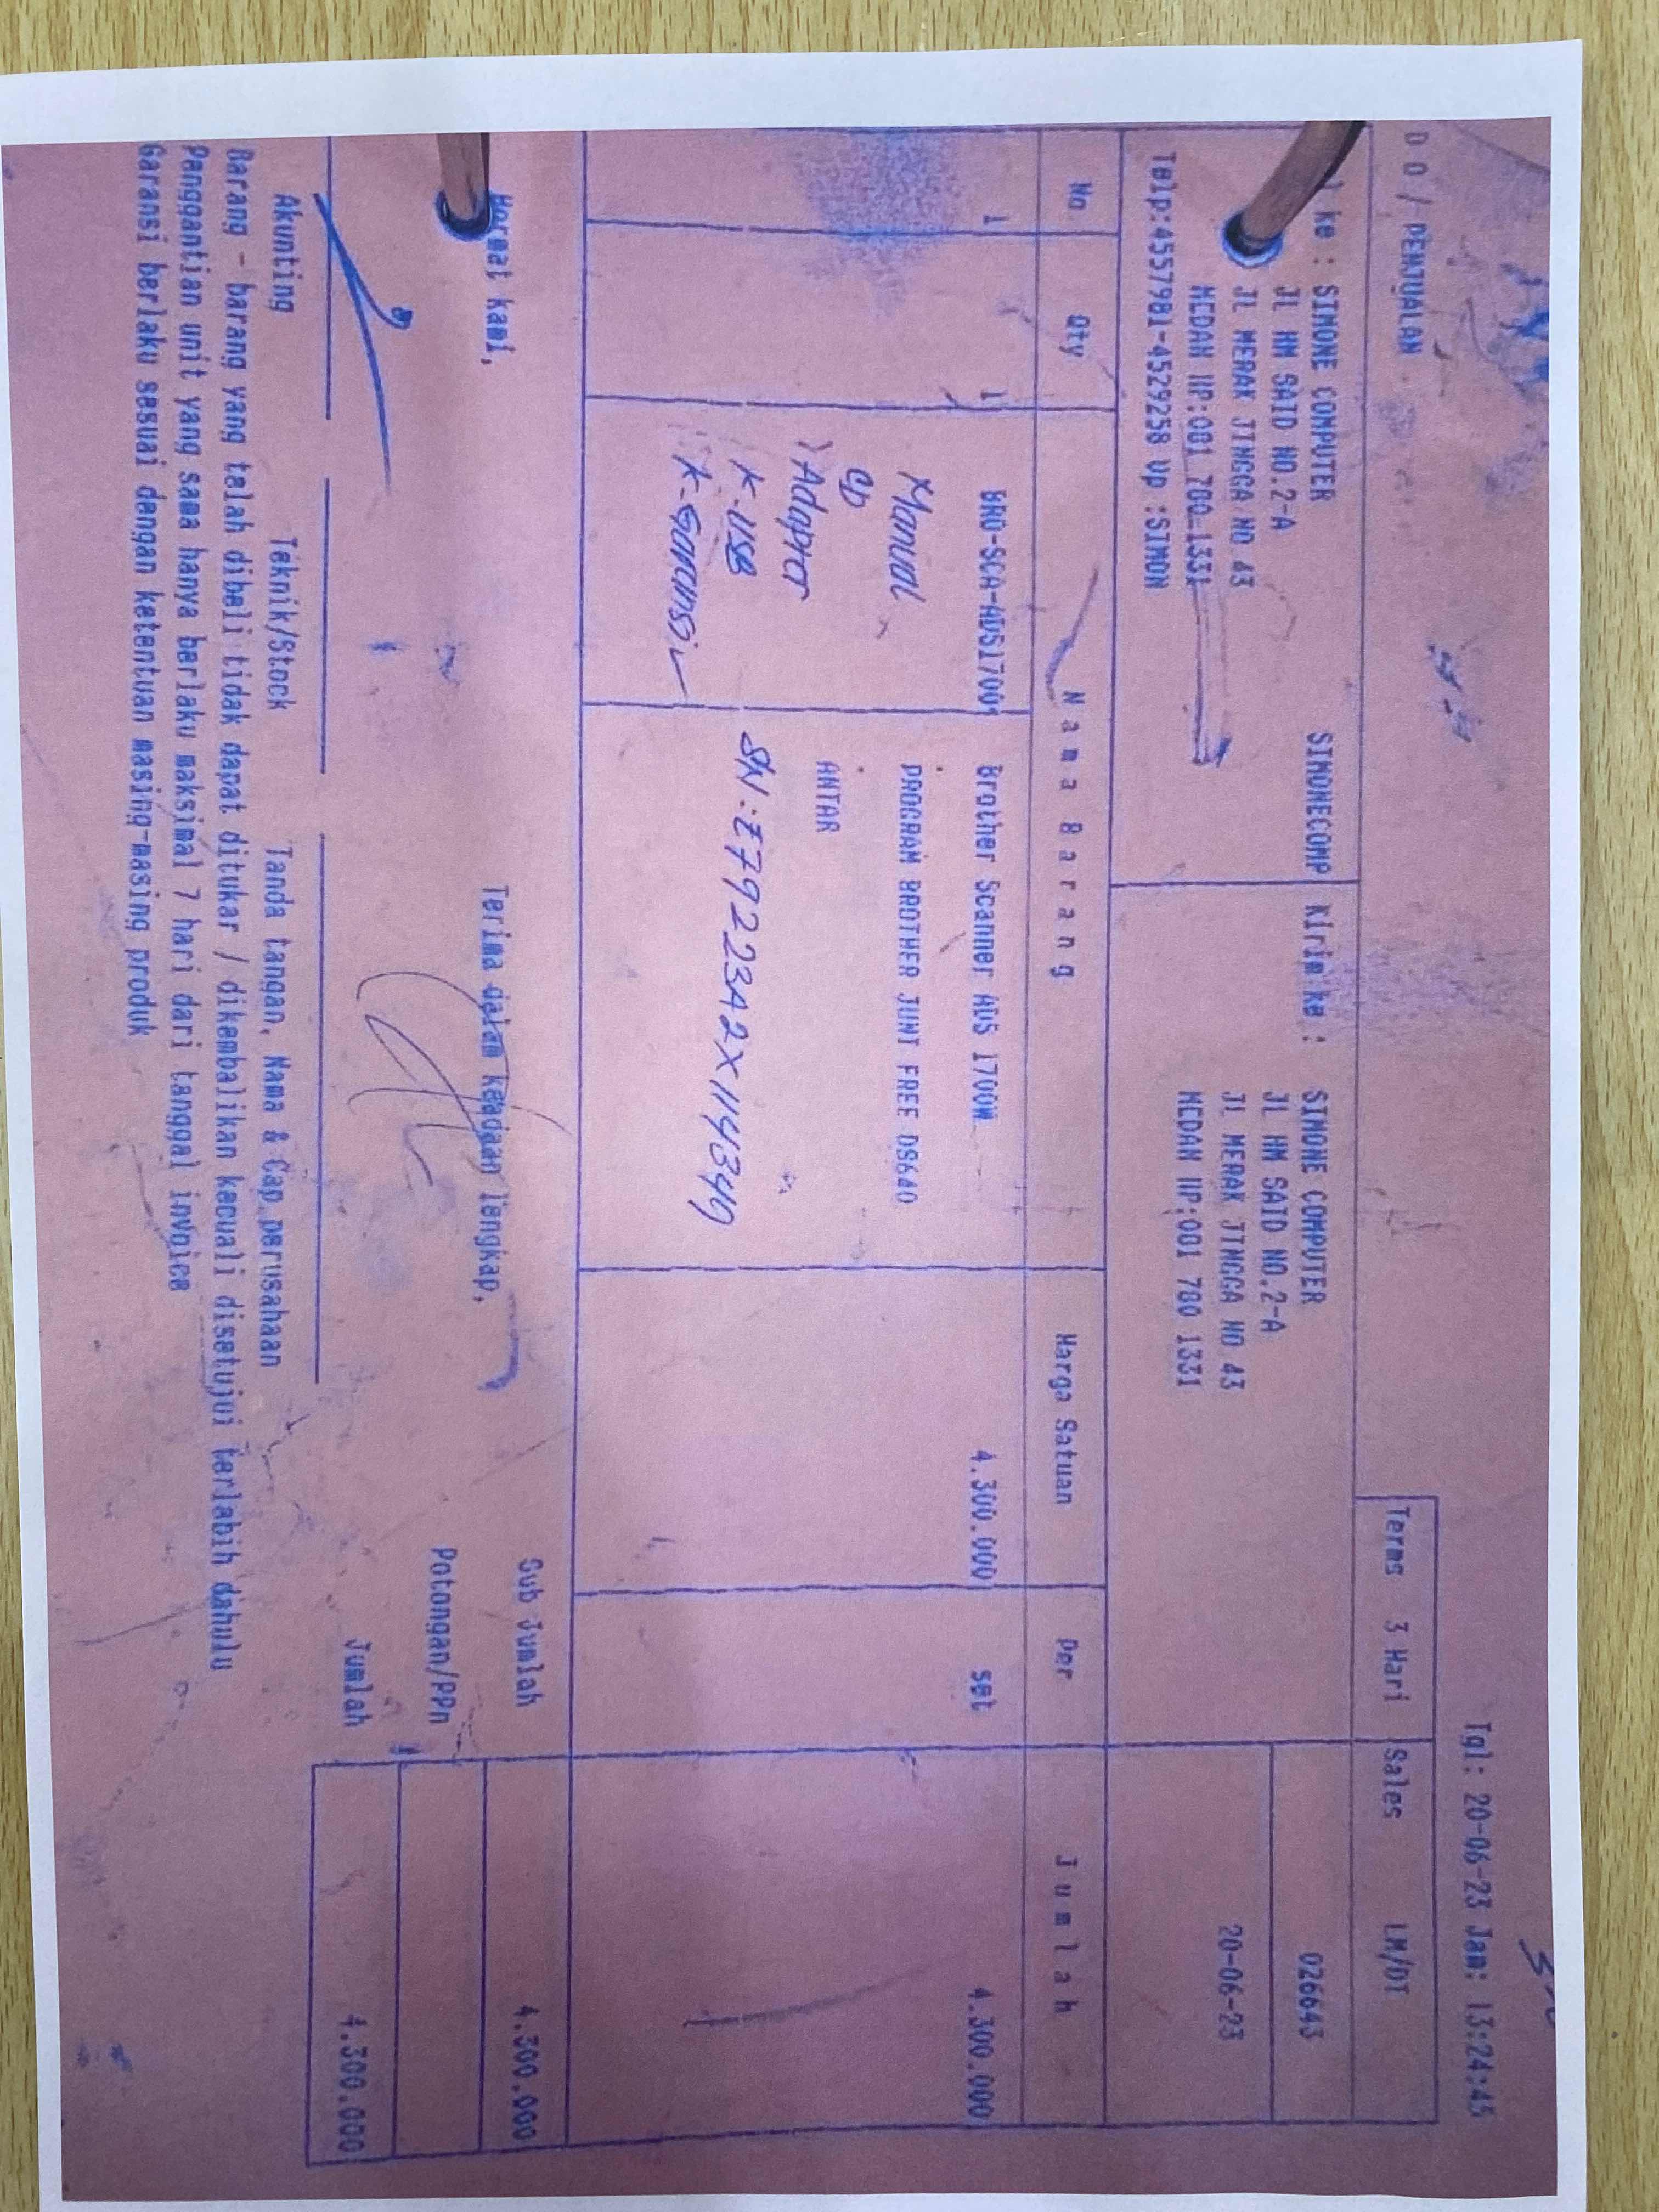 D O / PENJUALAN
Tgl: 20-06-23 Jam: 13:24:45
Terms 3 Hari Sales LM/DT
ke : SIMONE COMPUTER SIMONECOMP Kirim ke : SIMONE COMPUTER 026643
JL HM SAID NO.2-A JL HM SAID NO.2-A
JL MERAK JINGGA NO 43 JL MERAK JINGGA NO 43 20-06-23
MEDAN HP:081 780 1331 MEDAN HP:081 780 1331
Telp:4557981-4529258 Up :SIMON
No Qty Nama Barang Harga Satuan Per Jumlah
1 1 BRO-SCA-ADS1700W Brother Scanner ADS 1700W 4.300.000 set 4.300.000
Manual PROGRAM BROTHER JUNI FREE DS640
CD
Adapter ANTAR
K-USB SN:E79223A2X114349
K-Garansi
Hormat kami, Terima dalam keadaan lengkap, Sub Jumlah 4.300.000
Potongan/PPn
Jumlah 4.300.000
Akunting Teknik/Stock Tanda tangan, Nama & Cap perusahaan
Barang - barang yang telah dibeli tidak dapat ditukar / dikembalikan kecuali disetujui terlebih dahulu
Penggantian unit yang sama hanya berlaku maksimal 7 hari dari tanggal invoice
Garansi berlaku sesuai dengan ketentuan masing-masing produk